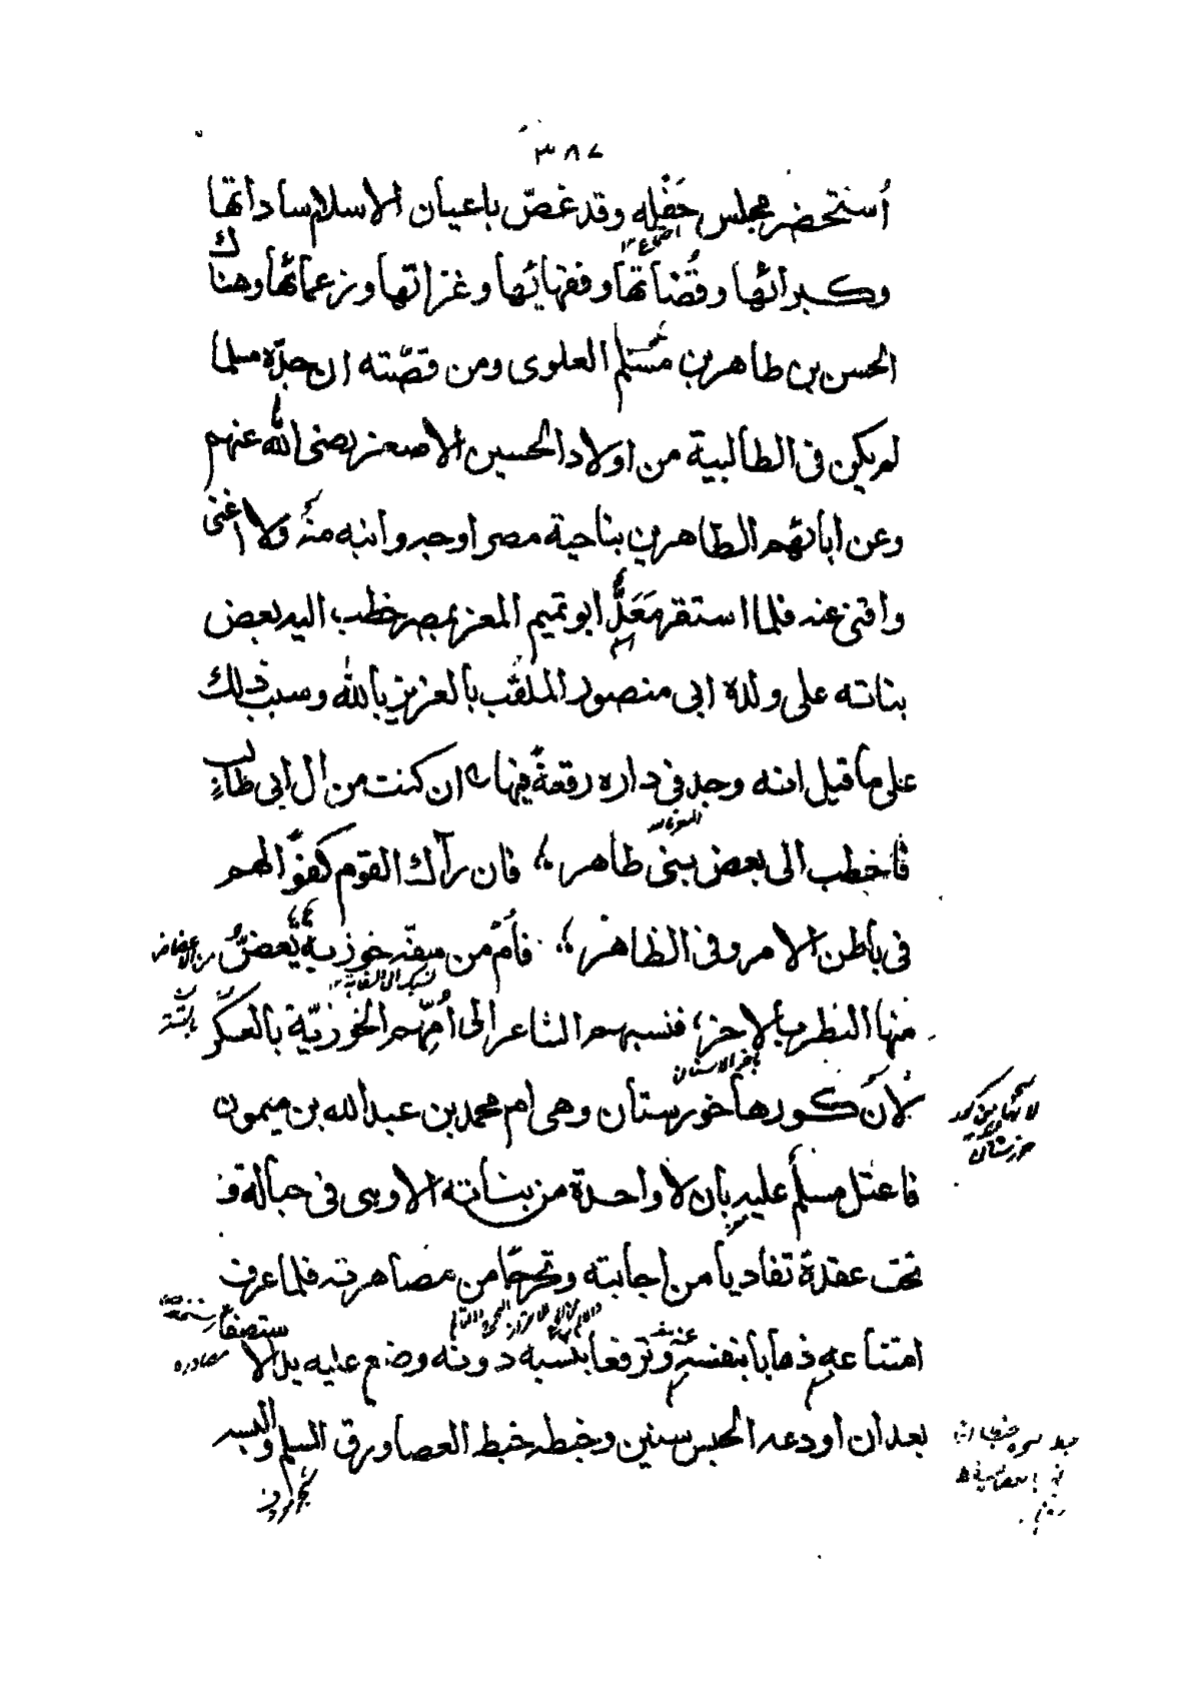 ٣٨٧
أستحضر مجلس حفله وقد غصّ باعيان الاسلام ساداتها
وكبرائها وقضاتها وفقهائها وغزاتها وزعمائها وهناك
الحسن بن طاهر بن مسلم العلوى ومن قصّته ان جدّه مسلما
لم يكن فى الطالبية من اولاد الحسين الاصغر رضى الله عنهم
وعن ابائهم الطاهرين بناحية مصر اوجه وانبه منه ولا اغنى
واقنى عنه فلما استقر مَعَدٌّ ابو تميم المعز بمصر خطب اليه بعض
بناته على ولده ابى منصور الملقب بالعزيز بالله وسبب ذلك
على ما قيل انه وجد فى داره رقعةً فيها ان كنت من ال ابى طالب
فاخطب الى بعض بنى طاهر فان رآك القوم كفوًا لهم
فى باطن الامر وفى الظاهر فأمّ من خوزية يعضّ
منها البظر بالاخر فنسبهم الشاعر الى أمّهم الخوزيّة بالعسكر
لأن كورها خوزستان وهى ام محمد بن عبد الله بن ميمون
فاعتل مسلم عليه بان لا واحدة من بناته الا وهى فى حباله و
تحت عقدة تفاديا من اجابته وتحرجا من مصاهرته فلما عرف
امتناعه ذهابا بنفسه وترفعا بنسبه دونه وضع عليه يدا لا
بعد ان اودعه الحبس سنين وخبطه خبط العصا ورق السلم